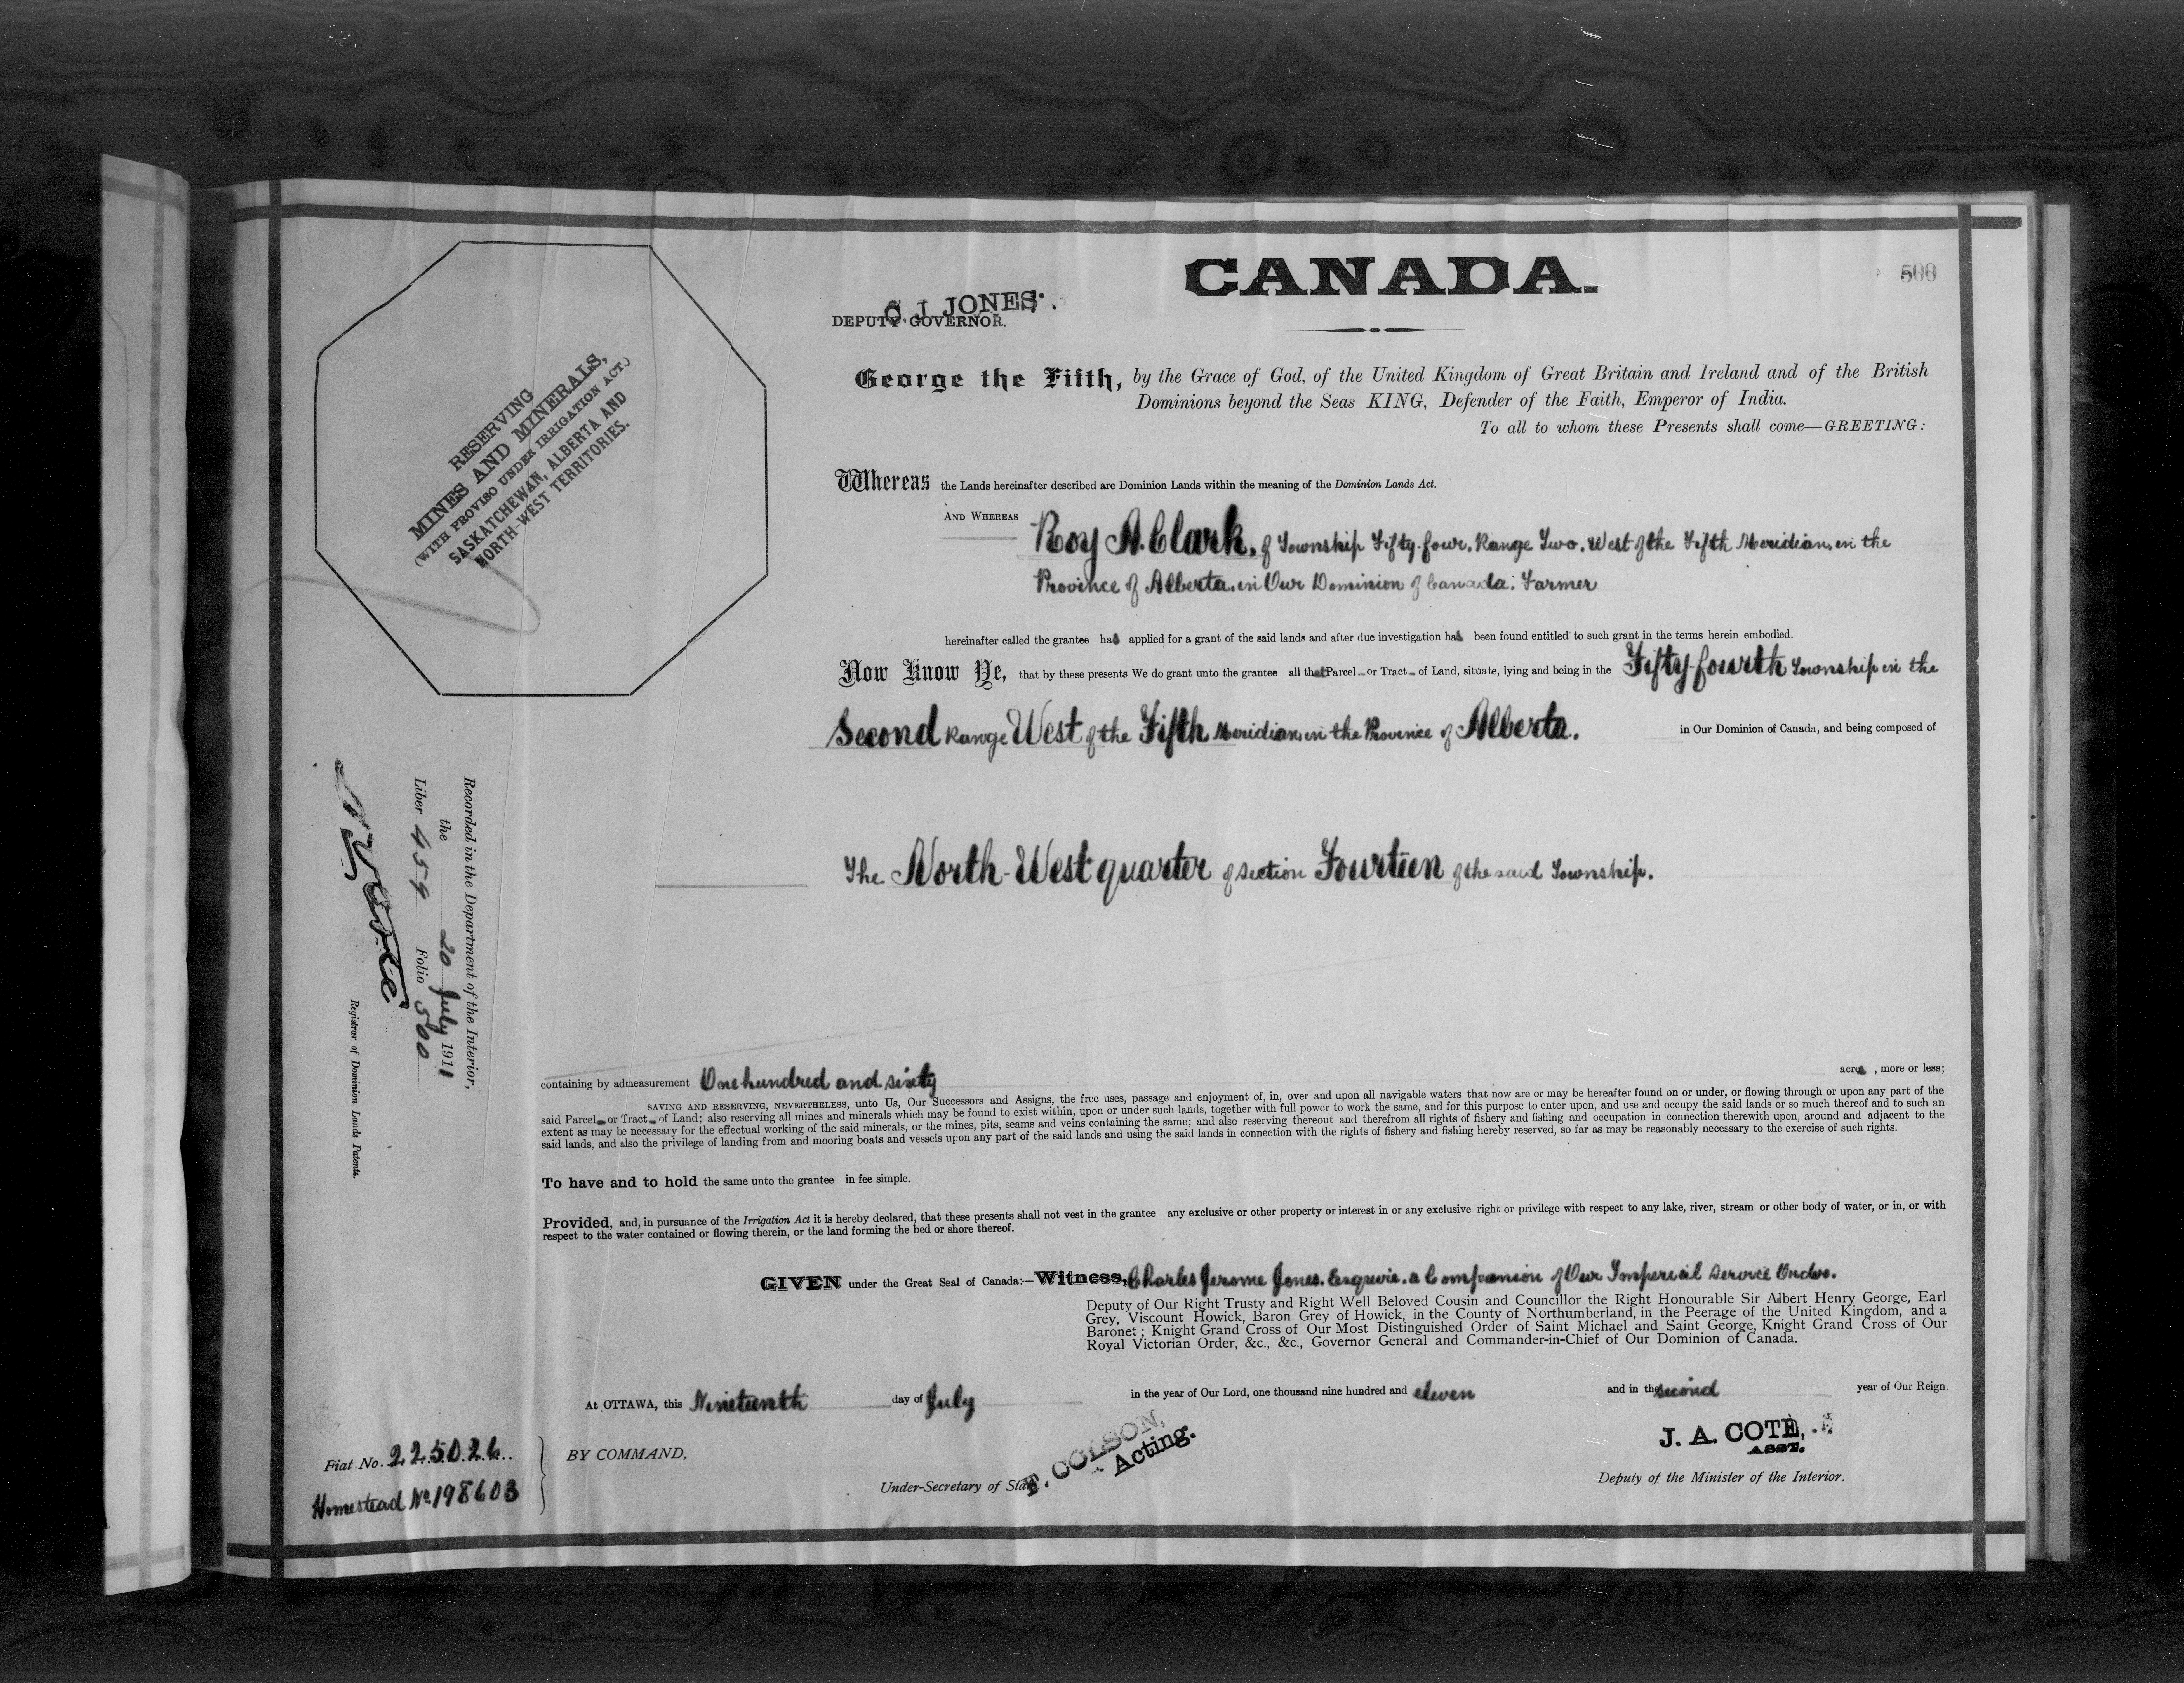 CANADA.
500
C. J. JONES.
DEPUTY GOVERNOR.
RESERVING
MINES AND MINERALS,
(WITH PROVISO UNDER IRRIGATION ACT.)
SASKATCHEWAN, ALBERTA AND
NORTH-WEST TERRITORIES.
George the Fifth, by the Grace of God, of the United Kingdom of Great Britain and Ireland and of the British
Dominions beyond the Seas KING, Defender of the Faith, Emperor of India.
To all to whom these Presents shall come—GREETING:
Whereas the Lands hereinafter described are Dominion Lands within the meaning of the Dominion Lands Act.
AND WHEREAS Roy A. Clark, of Township Fifty-four, Range Two, West of the Fifth Meridian, in the
Province of Alberta, in Our Dominion of Canada: Farmer
hereinafter called the grantee has applied for a grant of the said lands and after due investigation has been found entitled to such grant in the terms herein embodied.
Now Know Ye, that by these presents We do grant unto the grantee all that Parcel or Tract of Land, situate, lying and being in the Fifty-fourth Township in the
Second Range West of the Fifth Meridian, in the Province of Alberta. in Our Dominion of Canada, and being composed of
The North-West quarter of Section Fourteen of the said Township.
Recorded in the Department of the Interior,
the 20 July 1911
Liber 459 Folio 500
Registrar of Dominion Lands Patents.
containing by admeasurement One hundred and sixty acres, more or less;
SAVING AND RESERVING, NEVERTHELESS, unto Us, Our Successors and Assigns, the free uses, passage and enjoyment of, in, over and upon all navigable waters that now are or may be hereafter found on or under, or flowing through or upon any part of the
said Parcel or Tract of Land; also reserving all mines and minerals which may be found to exist within, upon or under such lands, together with full power to work the same, and for this purpose to enter upon, and use and occupy the said lands or so much thereof and to such an
extent as may be necessary for the effectual working of the said minerals, or the mines, pits, seams and veins containing the same; and also reserving thereout and therefrom all rights of fishery and fishing and occupation in connection therewith upon, around and adjacent to the
said lands, and also the privilege of landing from and mooring boats and vessels upon any part of the said lands and using the said lands in connection with the rights of fishery and fishing hereby reserved, so far as may be reasonably necessary to the exercise of such rights.
To have and to hold the same unto the grantee in fee simple.
Provided, and, in pursuance of the Irrigation Act it is hereby declared, that these presents shall not vest in the grantee any exclusive or other property or interest in or any exclusive right or privilege with respect to any lake, river, stream or other body of water, or in, or with
respect to the water contained or flowing therein, or the land forming the bed or shore thereof.
GIVEN under the Great Seal of Canada:—Witness, Charles Jerome Jones, Esquire, a Companion of Our Imperial Service Order.
Deputy of Our Right Trusty and Right Well Beloved Cousin and Councillor the Right Honourable Sir Albert Henry George, Earl
Grey, Viscount Howick, Baron Grey of Howick, in the County of Northumberland, in the Peerage of the United Kingdom, and a
Baronet; Knight Grand Cross of Our Most Distinguished Order of Saint Michael and Saint George, Knight Grand Cross of Our
Royal Victorian Order, &c., &c., Governor General and Commander-in-Chief of Our Dominion of Canada.
At OTTAWA, this Nineteenth day of July in the year of Our Lord, one thousand nine hundred and eleven and in the second year of Our Reign.
Fiat No. 225026
Homestead No. 198603
BY COMMAND,
F. COLSON,
Acting.
Under-Secretary of State.
J. A. COTÉ,
ASST.
Deputy of the Minister of the Interior.